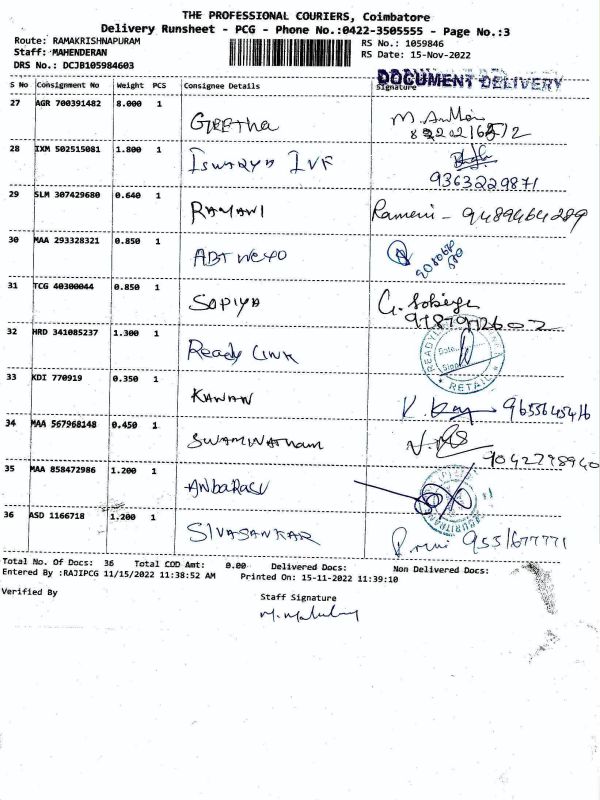 THE PROFESSIONAL COURIERS, Coimbatore
Delivery Runsheet - PCG - Phone No.:0422-3505555 - Page No.:3
Route: RAMAKRISHNAPURAM RS No.: 1059846
Staff: MAHENDERAN RS Date: 15-Nov-2022
DRS No.: DCJB105984603
DOCUMENT DELIVERY
S No Consignment No Weight PCS Consignee Details Signature
27 AGR 700391482 8.000 1 GEETHA
28 IXM 502515081 1.800 1 ISWARYA IVF
9363229871
29 SLM 307429680 0.640 1 RAMANI Rameni - 9489464289
30 MAA 293328321 0.850 1
31 TCG 40300044 0.850 1 SOPIYA
32 HRD 341085237 1.300 1 Ready LINK
RETAIL
33 KDI 770919 0.350 1 KANAN 9655645416
34 MAA 567968148 0.450 1 SWAMINATHAM
7042798940
35 MAA 858472986 1.200 1 ANBARASU
36 ASD 1166718 1.200 1 SIVASANKAR 9551677771
Total No. Of Docs: 36 Total COD Amt: 0.00 Delivered Docs: Non Delivered Docs:
Entered By :RAJIPCG 11/15/2022 11:38:52 AM Printed On: 15-11-2022 11:39:10
Verified By Staff Signature